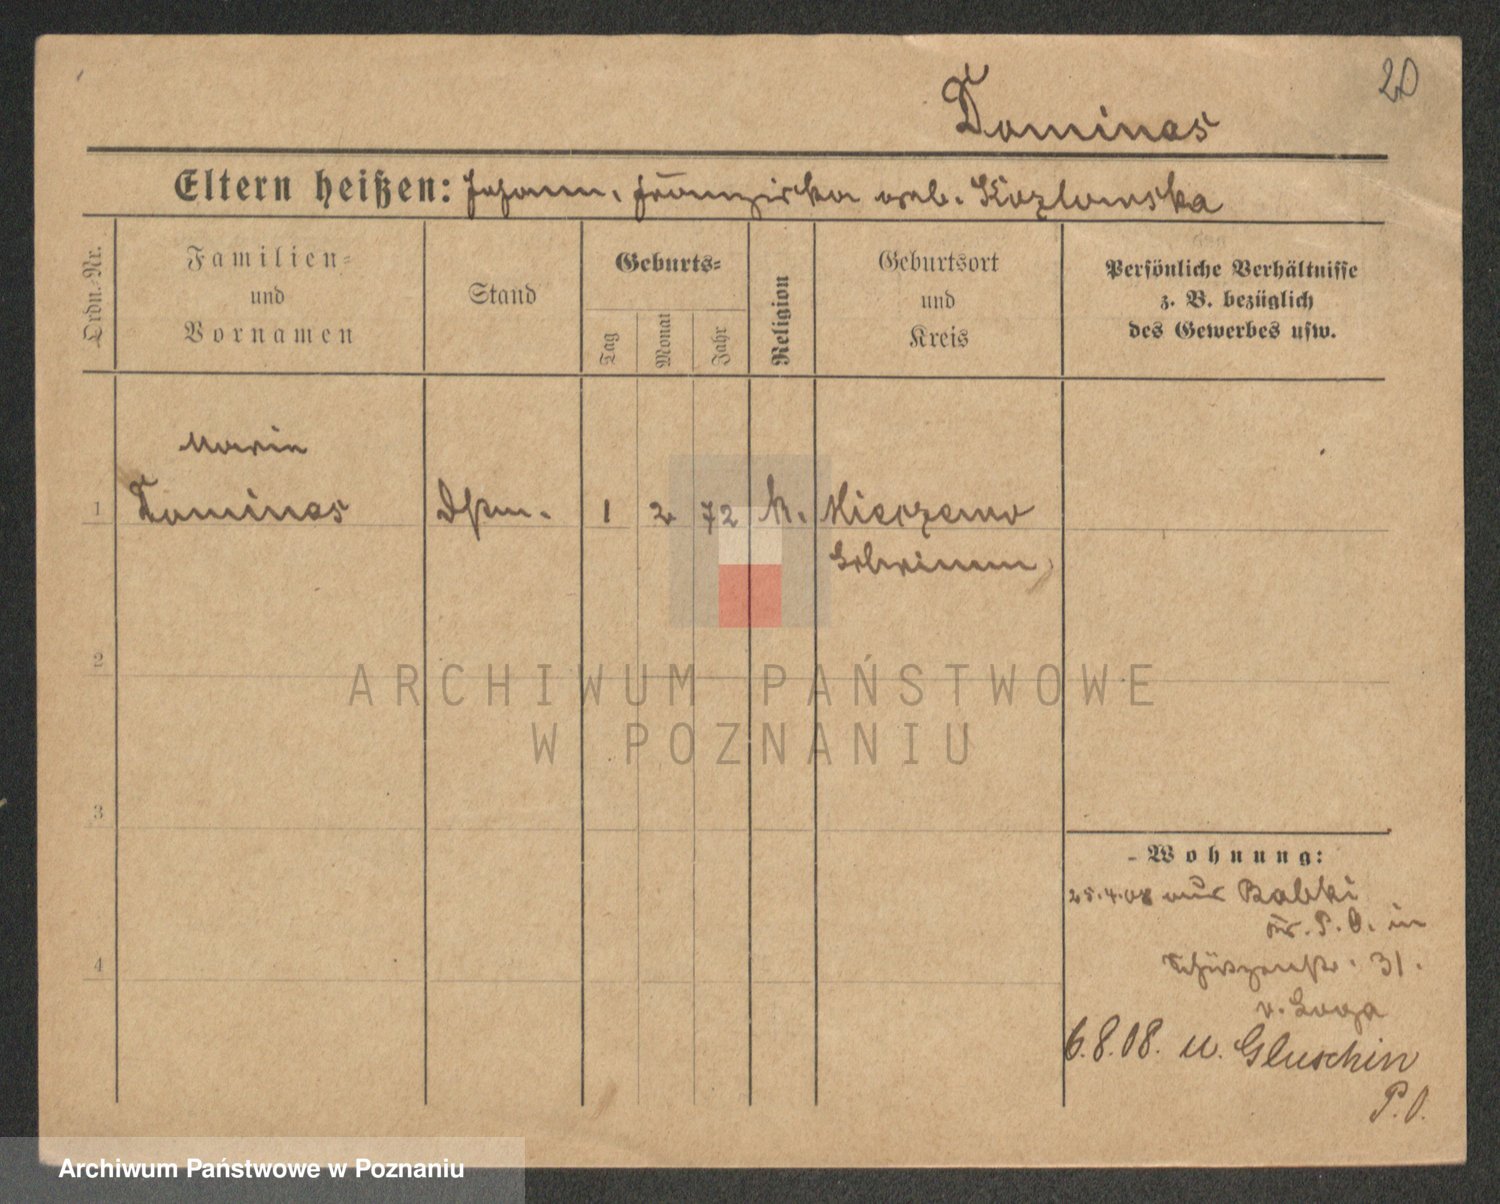 20
Dominas
Eltern heißen: Johann, Franziska geb. Kozlowska
Ordn.-Nr.
Familien=
und
Vornamen
Stand
Geburts=
Tag
Monat
Jahr
Religion
Geburtsort
und
Kreis
Persönliche Verhältnisse
z. B. bezüglich
des Gewerbes usw.
Marie
1 Dominas 1 2 72 k. Mieczewo
Schrimm
2
ARCHIWUM PAŃSTWOWE
W POZNANIU
3
Wohnung:
25.4.08 aus Babki
Kr. P. O. in
4
Schützenstr. 31.
v. Loga
6.8.08. u. Gluschin
P. O.
Archiwum Państwowe w Poznaniu